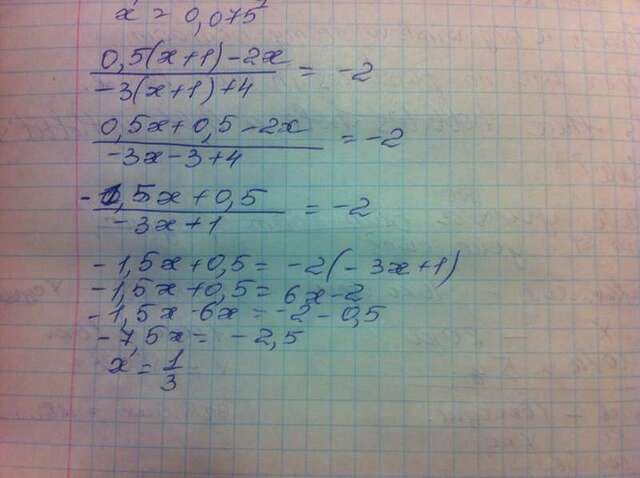 x = 0,075
0,5(x+1)-2x / -3(x+1)+4 = -2
0,5x+0,5-2x / -3x-3+4 = -2
-1,5x+0,5 / -3x+1 = -2
-1,5x+0,5 = -2(-3x+1)
-1,5x+0,5 = 6x-2
-1,5x-6x = -2-0,5
-7,5x = -2,5
x = 1/3